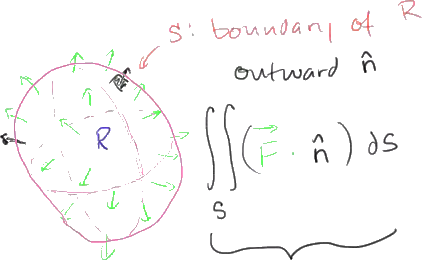 S: boundary of R
outward n̂
R
∬ (F⃗ · n̂) dS
S